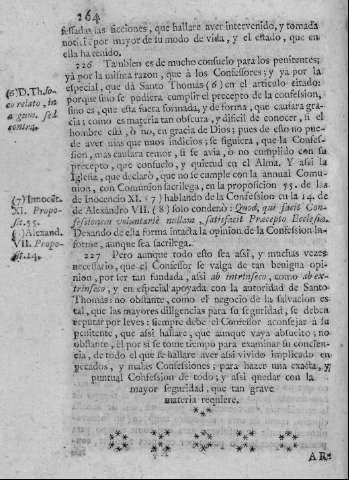 264
fessadas las ficciones, que hallare aver intervenido, y tomada
notici. por mayor de su modo de vida, y el estado, que en
ella ha tenido.
226 Tambien es de mucho consuelo para los penitentes;
yà por la misma razon, que à los Confessores; y ya por la
especial, que dà Santo Thomas (6) en el articulo citado:
porque sino se pudiera cumplir el precepto de la confession,
sino es, que esta fuera formada, y de forma, que causara gra-
cia; como es materia tan obscura, y dificil de conocer, si el
hombre està, ò no, en gracia de Dios; pues de esto no pue-
de aver mas que unos indicios; se siguiera, que la Confes-
sion, mas causara temor, si se avia, o no cumplido con su
precepto, que consuelo, y quietud en el Alma. Y assi la
Iglesia, que declarò, que no se cumple con la annual Comu-
nion, con Comunion sacrilega, en la proposicion 55. de las
de Inocencio XI. (7) hablando de la Confession en la 14. de
de Alexandro VII. (8) solo condenò: Quod, qui facit Con-
fessionem voluntariè nullam, satisfacit Precepto Ecclesiæ.
Dexando de ella forma intacta la opinion de la Confession In-
forme, aunque sea sacrilega.
227 Pero aunque todo esto sea assi, y muchas vezes
necessario, que el Confesor se valga de tan benigna opi-
nion, por ser tan fundada, assi ab intrinseco, como ab ex-
trinseco, y en especial apoyada con la autoridad de Santo
Thomas: no obstante, como el negocio de la salvacion es
tal, que las mayores diligencias para su seguridad, se deben
reputar por leves; siempre debe el Confesor aconsejar a su
penitente, que assi hallare, que aunque vaya absuelto; no
obstante, èl por si se tome tiempo para examinar su concien-
cia, de todo el que se hallare aver assi vivido implicado en
pecados, y malas Confessiones; para hazer una exacta, y
puntual Confession de todo; y assi quedar con la
mayor seguridad, que tan grave
materia requiere.
(6) D. Th. lo-
co relato, in
argum. sed
contra.
(7) Innocēt.
XI. Propo-
sit. 55.
Alexand.
VII. Propo-
sit. 14.
AR-